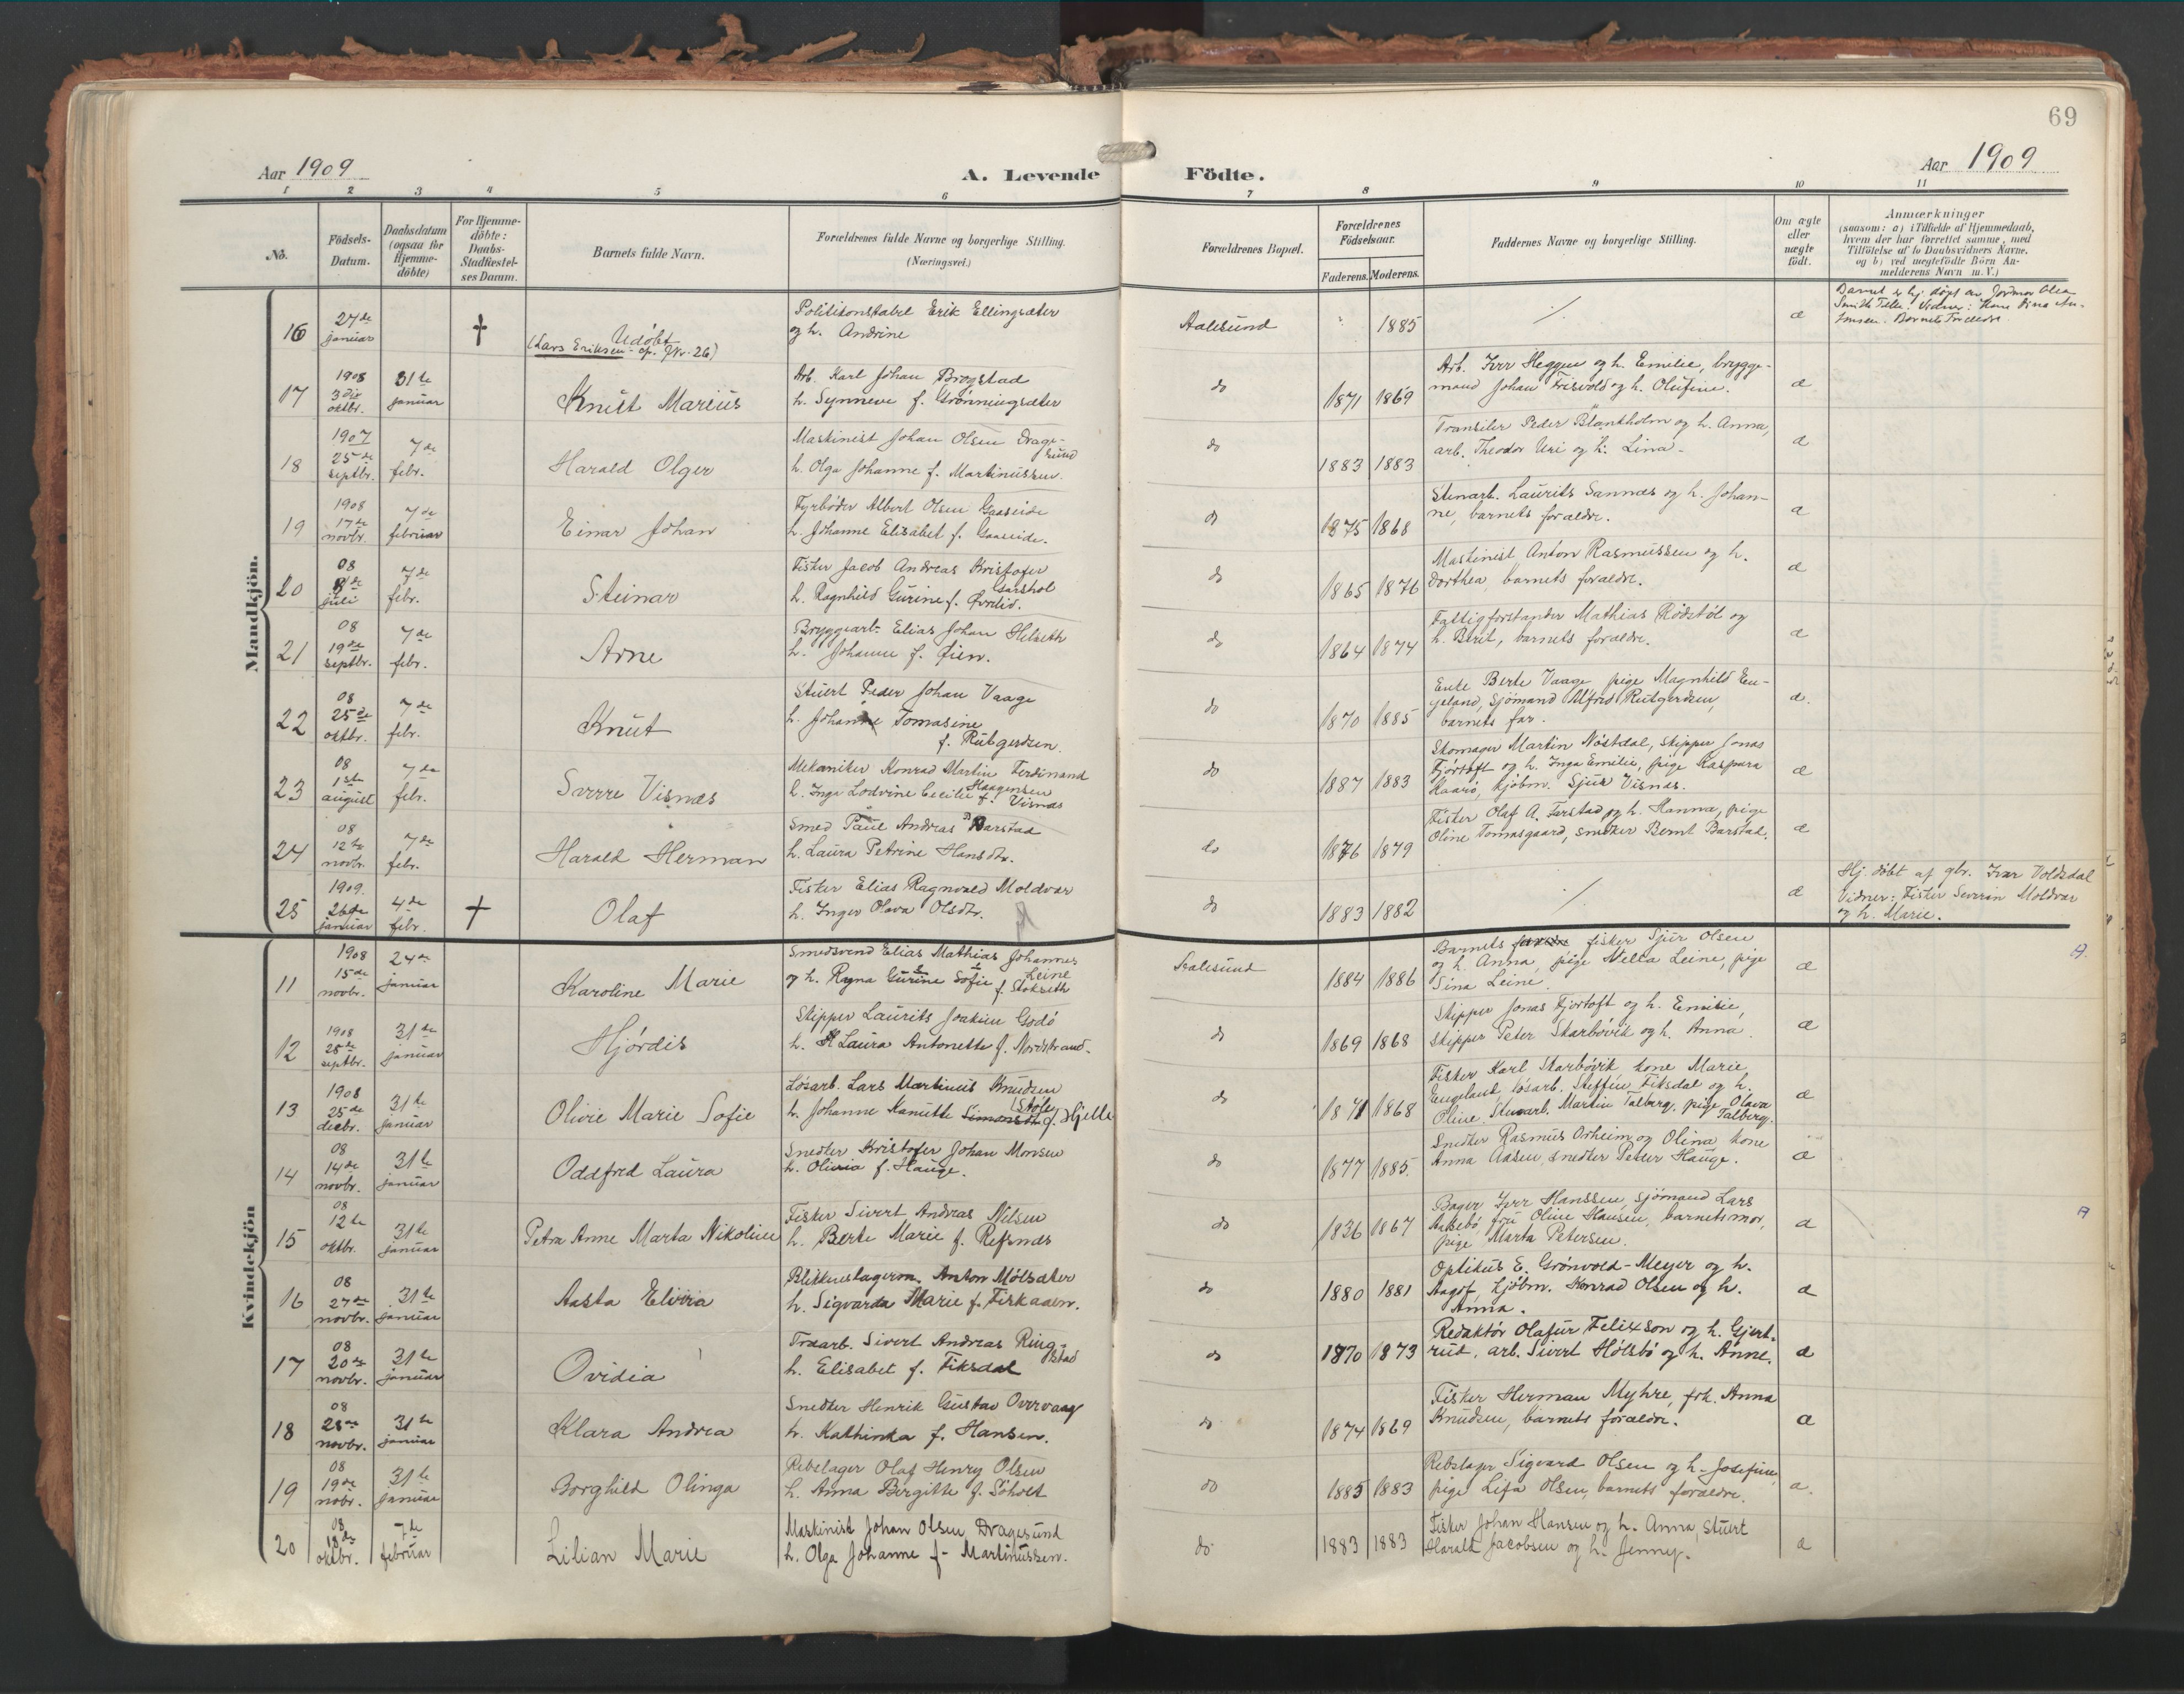 69
Aar 1909
A. Levende
Födte.
Aar 1909
1 2 3 4 5 6 7 8 9 10 11
No.
Födsels-
Datum.
Daabsdatum
(ogsaa for
Hjemme-
döbte)
For Hjemme-
döbte:
Daabs-
Stadfæstel-
ses Datum.
Barnets fulde Navn.
Forældrenes fulde Navne og borgerlige Stilling.
(Næringsvei.)
Forældrenes Bopæl.
Forældrenes
Födselsaar.
Faderens. Moderens.
Faddernes Navne og borgerlige Stilling.
Om ægte
eller
uægte
födt.
Anmærkninger
(saasom: a) i Tilfælde af Hjemmedaab,
hvem der har forrettet samme, med
Tilföielse af to Daabsvidners Navne,
og b) ved uægtefödte Börn An-
melderens Navn m. V.)
Mandkjön.
16
27de
januar
†
Udöbt
(Lars Eriksen - cfr. No. 26)
Politikonstabel Erik Ellingsæter
og h. Andrine
Aalesund
1885
æ
17
1908
3die
oktbr.
31te
januar
Knut Marius
Arb. Karl Johan Brogstad
h. Synneve f. Grönningsæter
do
1871 1869
Arb. Iver Heggen og h. Emilie, brygge-
mand Johan Frisvold og h. Olufine.
æ
18
1907
25de
septbr.
7de
febr.
Harald Olger
Maskinist Johan Olsen Drage-
sund
h. Olga Johanne f. Martinussen.
do
1883 1883
Transiler Peder Blankholm og h. Anna,
arb. Theodor Uri og h. Lina.
æ
19
1908
17de
novbr.
7de
februar
Einar Johan
Fyrböder Albert Olsen Gaaseide
h. Johanne Elisabet f. Gaaseide.
do
1875 1868
Stenarb. Laurits Sannes og h. Johan-
ne, barnets forældre.
æ
20
08
8de
juli
7de
febr.
Steinar
Fisker Jacob Andreas Kristofer
Garshol
h. Ragnhild Gurine f. Övrelid.
do
1865 1876
Maskinist Anton Rasmussen og h.
Dorthea, barnets forældre.
æ
21
08
19de
septbr.
7de
febr.
Arne
Bryggearb. Elias Johan Helseth
h. Johanne f. Öien.
do
1864 1874
Fattigforstander Mathias Rödstöl og
h. Berit, barnets forældre.
æ
22
08
25de
oktbr.
7de
febr.
Knut
Stuert Peder Johan Vaage
h. Johanne Tomasine
f. Rutgerdsen.
do
1870 1885
Enke Berte Vaage, pige Magnhild En-
geland, sjömand Alfred Rutgerdsen,
barnets far.
æ.
23
08
1ste
august
7de
febr.
Sverre Visnæs
Mekaniker Konrad Martin Ferdinand
Haagensen
h. Inga Lodvine Cecilie f. Visnæs
do
1887 1883
Skomager Martin Nöstdal, skipper Jonas
Fjörtoft og h. Inga Emilie, pige Kaspara
Haarö, kjöbm. Sjur Visnæs.
æ
24
08
12te
novbr.
7de
febr.
Harald Herman
Smed Paul Andreas Barstad
h. Laura Petrine Hansdtr.
do
1876 1879
Fisker Olaf A. Farstad og h. Hanna, pige
Oline Tomasgaard, snedker Bernt Barstad.
æ
25
1909.
26de
januar
4de
febr.
†
Olaf
Fisker Elias Ragnvald Moldvær
h. Inger Olava Olsdtr.
do
1883 1882
æ
Hj. döbt af gbr. Ivar Voldsdal
Vidner: Fisker Severin Moldvær
og h. Marie.
Kvindekjön
11
1908
15de
novbr.
24de
januar
Karoline Marie
Smedsvend Elias Mathias Johannes
Leine
og h. Ragna Gurine Sofie f. Stokseth
Aalesund
1884 1886
Barnets forældre fisker Sjur Olsen
og h. Anna, pige Nella Leine, pige
Sina Leine.
æ
12
1908
28de
septbr.
31te
januar
Hjördis
Skipper Laurits Joakim Godö
h. Laura Antonette f. Nordstrand.
do
1869 1868
Skipper Jonas Fjortoft og h. Emilie,
skipper Peter Skarbövik og h. Anna.
æ
13
1908
25de
decbr.
31te
januar
Olivie Marie Sofie
Lösarb. Lars Martinus Knudsen
h. Johanne Kanutte Simonsen f. Gjelle
do
1871 1868
Fisker Karl Skarbövik kone Marie
Engeland lösarb. Steffen Fiksdal og h.
Oline. Stenarb. Martin Talberg, pige Olava
Talberg.
æ
14
08
14de
novbr.
31te
januar
Oddfred Laura
Snedker Kristofer Johan Monsen
h. Olivia f. Hauge.
do
1877 1885.
Snedker Rasmus Orheim og Olina, kone
Anna Aasen, snedker Peder Hauge.
æ
15
08
12te
oktbr.
31te
januar
Petra Anne Marta Nikoline
Fisker Sivert Andreas Nilsen
h. Berte Marie f. Refsnæs
do
1836 1867
Bager Iver Hanssen, sjömand Lars
fru Oline Hansen, barnets mor,
pige Marta Petersen.
æ
16
08
27de
novbr.
31te
januar
Aasta Elvira
Blikkenslagerm. Anton Mölsæter
h. Sigvarda Marie f. Fiskaaen.
do
1880 1881
Optikus E. Grönvold-Meyer og h.
Aagot, kjöbm. Konrad Olsen og h.
Anna.
æ
17
08
20de
novbr.
31te
januar
Ovidia
Træarb. Sivert Andreas Ring-
stad
h. Elisabet f. Fiksdal
do
1870 1873
Redaktör Olafur Felixson og h. Gjert-
rud, arb. Sivert Hölsbö og h. Anne.
æ
18
08
28de
novbr.
31te
januar
Klara Andrea
Snedker Henrik Gustav Overvaag
h. Kathinka f. Hansen.
do
1874 1869
Fisker Herman Myhre, frk. Anna
Knudsen, barnets forældre.
æ
19
08
19de
novbr.
31te
januar
Borghild Olinga
Rebslager Olaf Henry Olsen
h. Anna Birgitte f. Söholt
do
1885 1883
Rebslager Sigvard Olsen og h. Josefine,
pige Lifa Olsen, barnets forældre.
æ.
20
08
18de
oktbr.
7de
februar
Lilian Marie
Maskinist Johan Olsen Dragesund
h. Olga Johanne f. Martinussen.
do
1883 1883
Fisker Johan Hansen og h. Anna, stuert
Harald Jacobsen og h. Jenny.
æ